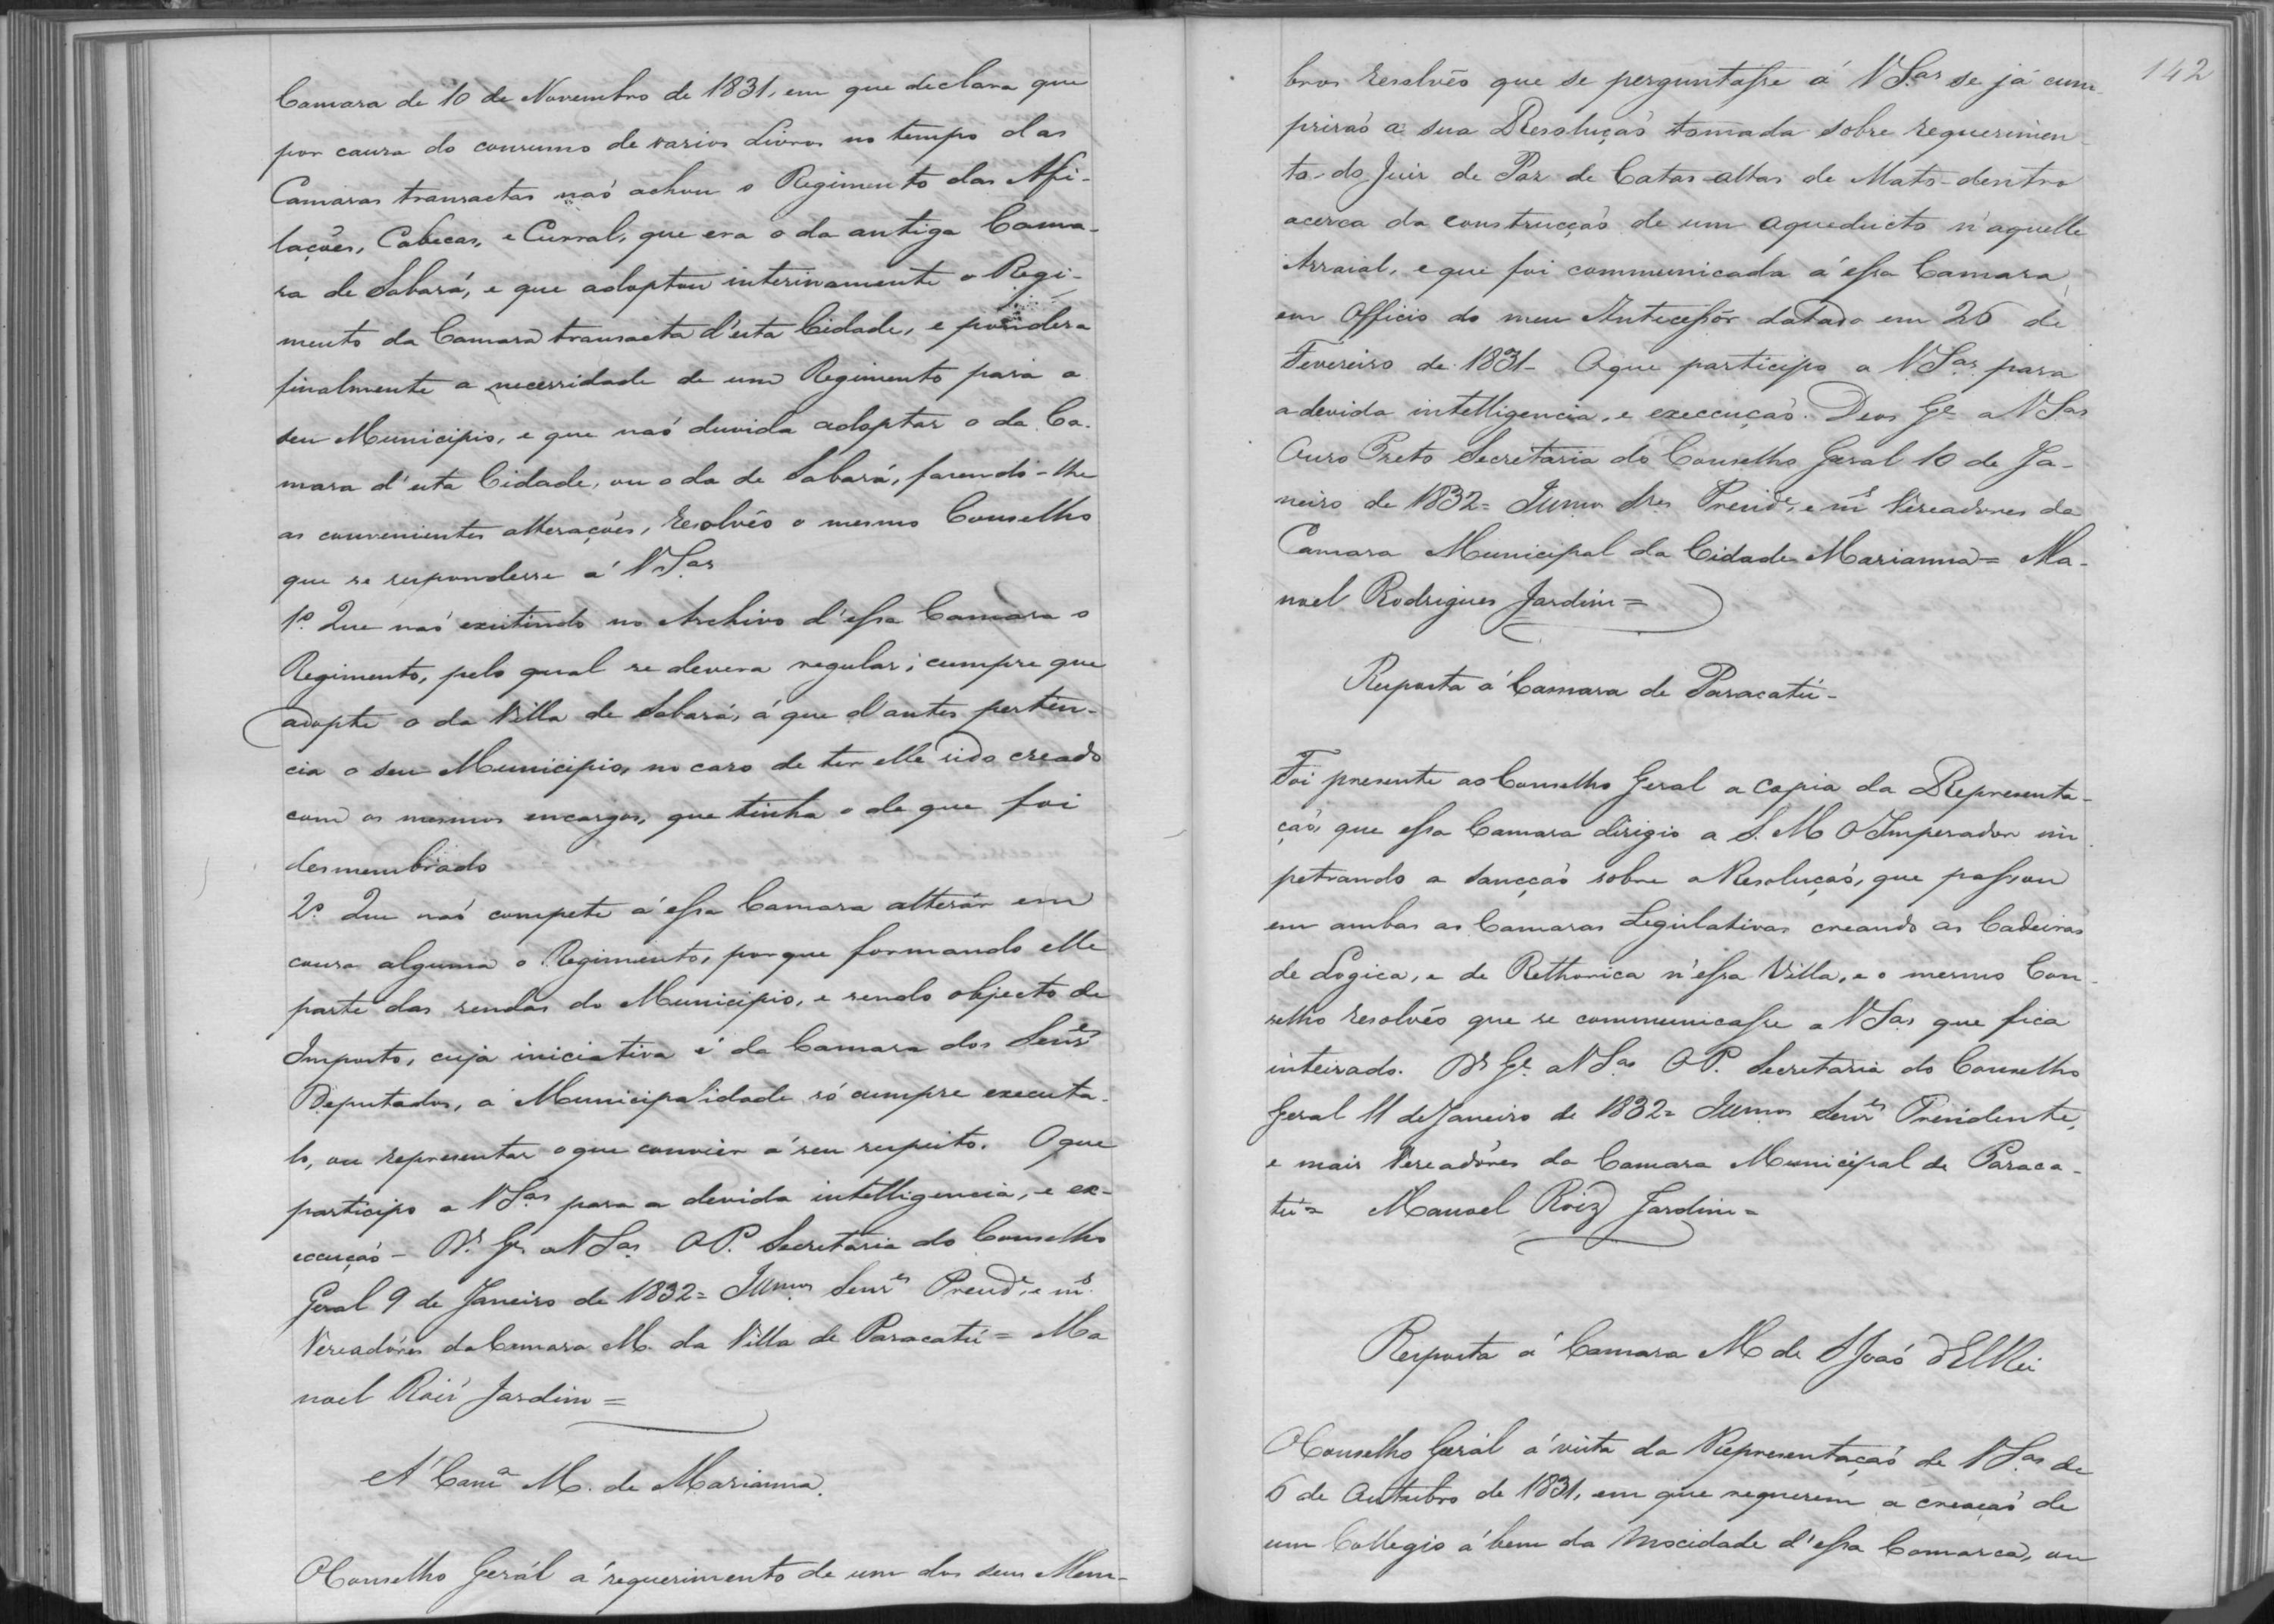 Camara de 10 de Novembro de 1831, em que declara que
por causa do consumo de varios Livros no tempo das
Camaras transactas naó achou o Regimento das Afi-
laçoẽs, Cabeças, e Curral, que era o da antiga Cama-
ra de Sabará, e que adoptou interinamente o Regi-
mento da Camara transacta d'esta Cidade, e pondera
finalmente a necessidade de um Regimento para o
seu Municipio, e que naó duvida adoptar o da Ca-
mara d'esta Cidade, ou o da de Sabará, fazendo-lhe
as convenientes alteraçoẽs, Resolvêo o mesmo Conselho
que se respondesse á VSas
1º Que naó existindo no Archivo d'essa Camara o
Regimento, pelo qual se devera regular; cumpre que
adopte o da Villa de Sabará, á que d'antes perten-
cia o seu Municipio, no caso de ter elle sido creado
com os mesmos encargos, que tinha o de que foi
desmembrado
2º Que naó compete á essa Camara alterár em
cousa alguma o Regimento, porque formando elle
parte das rendas do Municipio, e sendo objecto de
Imposto, cuja iniciativa é da Camara dos Senres
Deputados, á Municipalidade só cumpre executa-
lo, ou representar o que convier á seu respeito. O que
participo a VSas para a devida intelligencia, e ex-
ecuçaó - Ds Ge a VSas OP. Secretaria do Conselho
Geral 9 de Janeiro de 1832= Illmos Senres Presde, e ms
Vereadóres da Camara M. da Villa de Paracatú = Ma
noel Roiz Jardim =
A' Cama M. de Marianna.
O Conselho Gerál á requerimento de um dos seus Mem-
142
bros resolvêo que se perguntasse á VSas se já cum-
priraó a sua Resoluçaó tomada sobre requerimen-
to do Juiz de Paz de Catas-altas de Mato-dentro
acerca da construcçaó de um aqueducto n'aquelle
Arraial, e que foi communicada á essa Camara,
em Officio do meu Antecessôr datado em 26 de
Fevereiro de 1831- O que participo a VSas para
a devida intelligencia, e execuçaó. Deos Ge a VSas
Ouro Preto Secretaria do Conselho Geral 10 de Ja-
neiro de 1832= Illmos Sres Preside, e ms Vereadores da
Camara Municipal da Cidade Marianna= Ma-
noel Rodrigues Jardim=
Resposta á Camara de Paracatú-
Foi presente ao Conselho Geral a copia da Representa-
çaó, que essa Camara dirigio a S. M. O Imperador im
petrando a Sancçaó sobre a Resoluçaó, que passou
em ambas as Camaras Legislativas creando as Cadeiras
de Logica, e de Rethorica n'essa Villa, e o mesmo Con-
selho resolvêo que se communicasse a VSas que fica
inteirado. Ds Ge a VSas OP. Secretaria do Conselho
Geral 11 de Janeiro de 1832= Illmos Senres Presidente,
e mais Vereadôres da Camara Municipal de Paraca-
tú= Manoel Roiz Jardim=
Resposta á Camara M de S Joaó d'ElRei
O Conselho Gerál á vista da Representaçaó de VSas de
6 de Outubro de 1831, em que requerem a creaçaó de
um Collegio á bem da Mocidade d'essa Comarca, ou